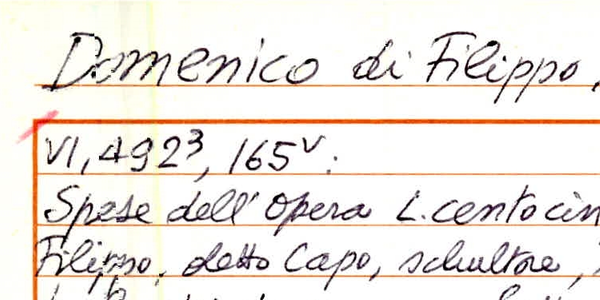 Domenico di Filippo,
VI, 4923, 165v:
Spese dell'Opera L. cento cin
Filippo, detto Capo, schultore,